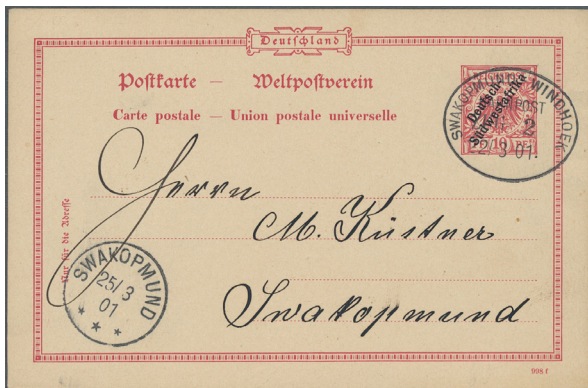 Deutschland
Postkarte — Weltpostverein
Carte postale — Union postale universelle
Deutsch-
Südwestafrika
SWAKOPMUND-WINDHOEK
BAHNPOST
2
22/3 01.
Nur für die Adresse
Herrn
M. Küstner
Swakopmund
SWAKOPMUND
25/3
01
* * *
998 f